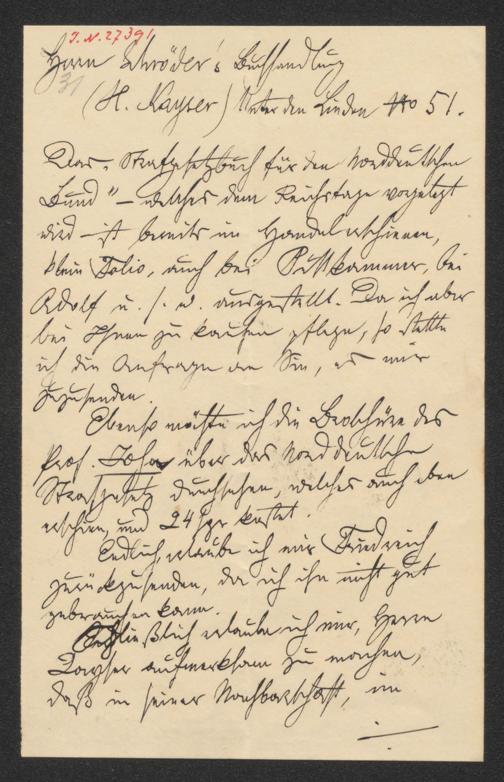 I. N. 27391
Herrn Schröder's Buchhandlung
31
(H. Kayser) Unter den Linden No 51.
Das „Strafgesetzbuch für den Norddeutschen
Bund" – welches dem Reichstage vorgelegt
wird – ist bereits im Handel erschienen,
klein Folio, auch bei Puttkammer, bei
Adolf u. s. w. ausgestellt. Da ich aber
bei Ihnen zu kaufen pflege, so stelle
ich die Anfrage an Sie, es mir
zuzusenden.
Ebenso möchte ich die Broschüre des
Prof. John über das Norddeutsche
Strafgesetz durchsehen, welches auch eben
erschien, und 24 Sgr kostet.
Endlich, erlaube ich mir Friedreich
zurückzusenden, da ich ihn nicht gut
gebrauchen kann.
Schließlich erlaube ich mir, Herrn
Kayser aufmerksam zu machen,
daß in seiner Nachbarschaft, im